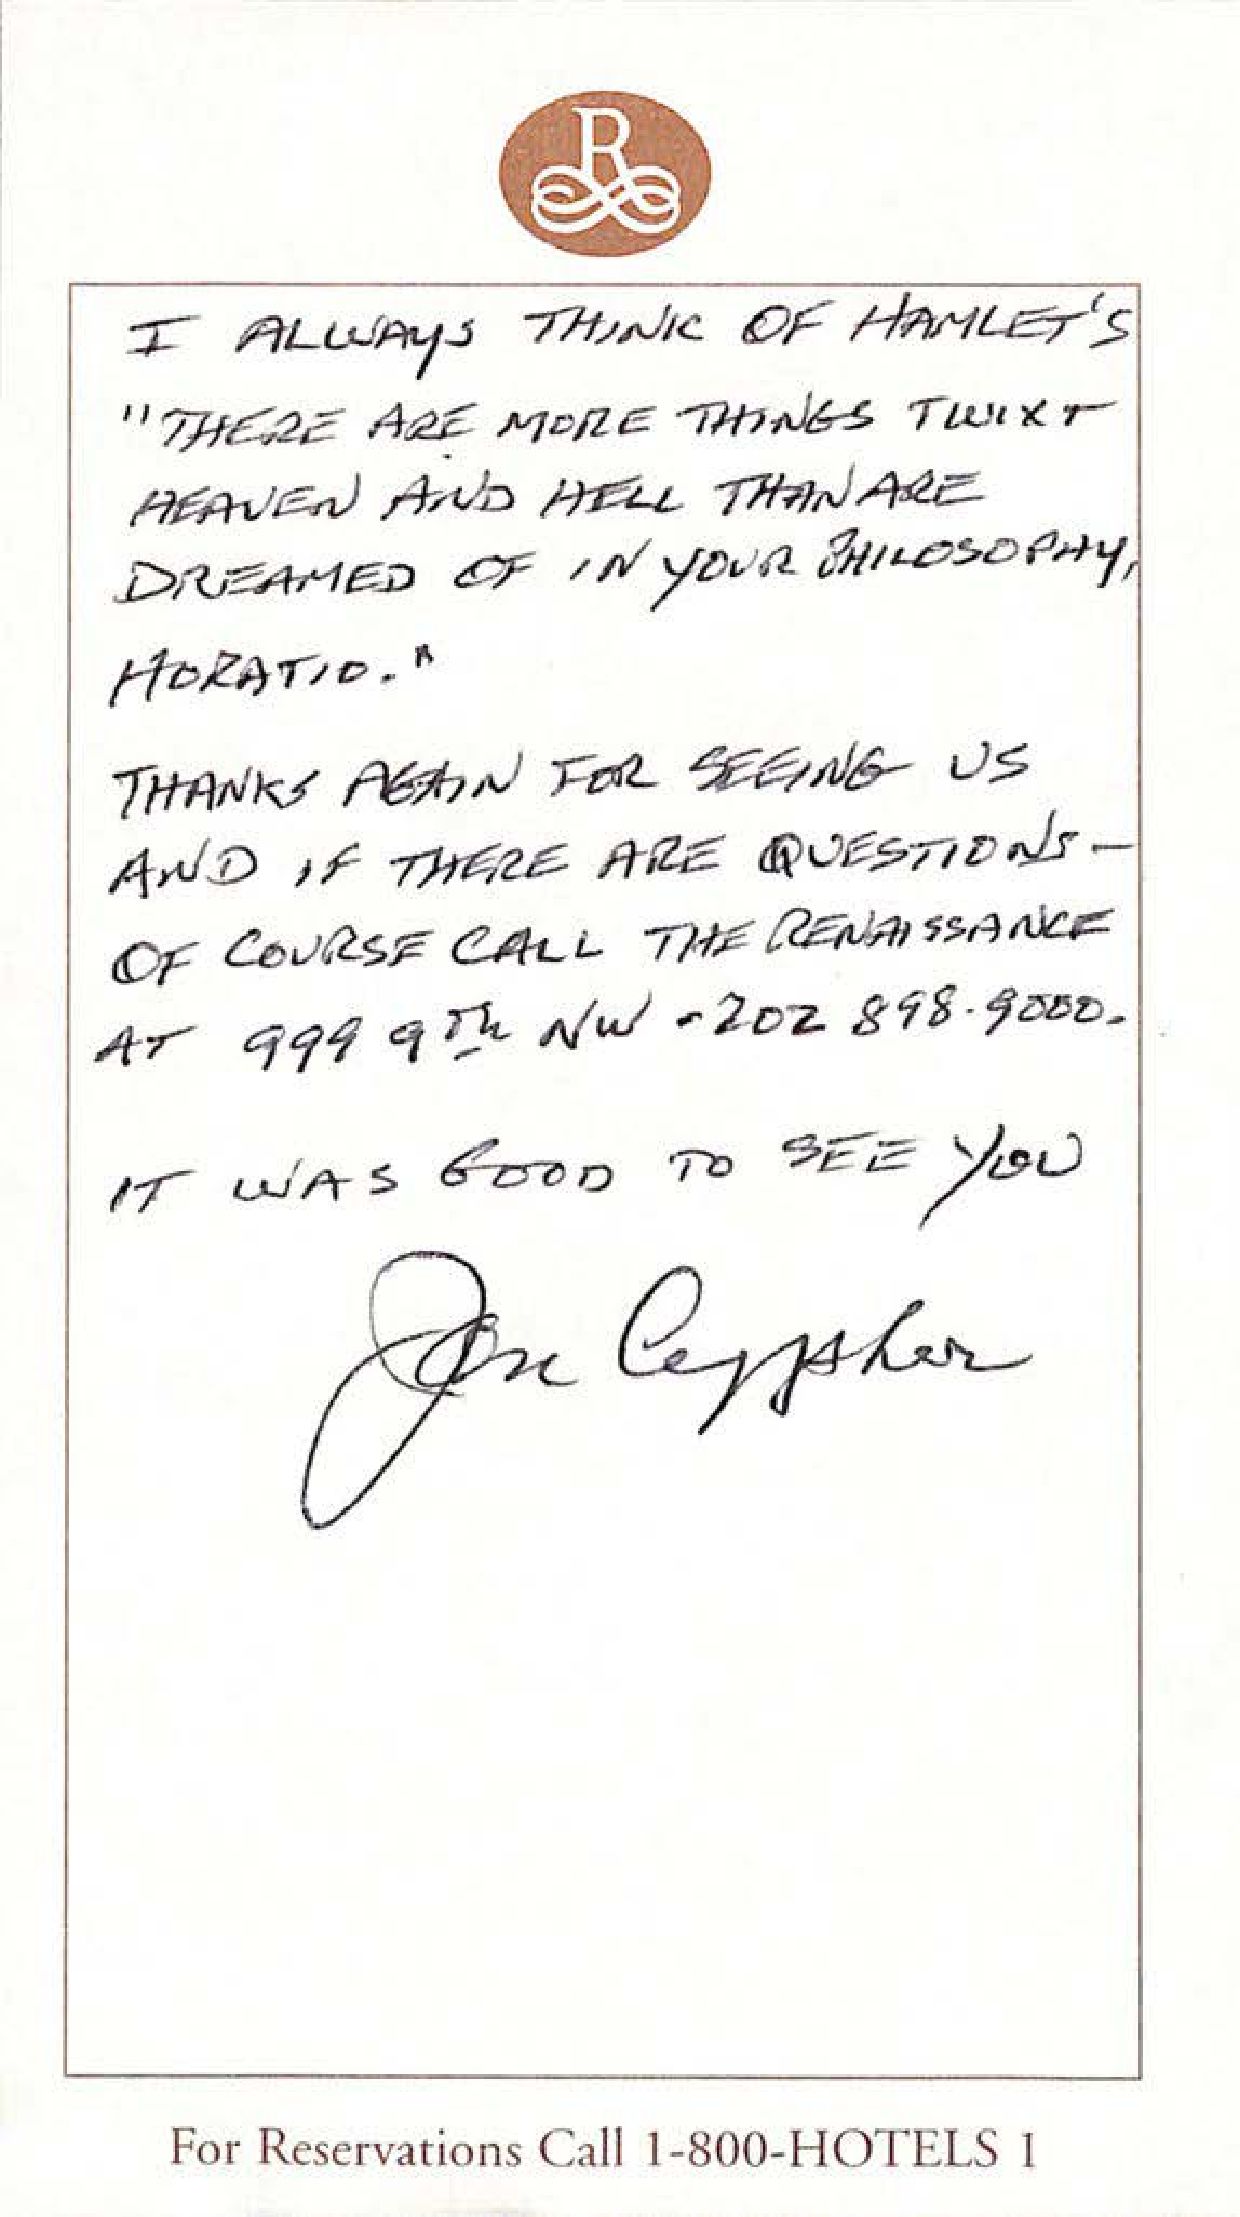 R
I ALWAYS THINK OF HAMLET'S
"THERE ARE MORE THINGS TWIXT
HEAVEN AND HELL THAN ARE
DREAMED OF IN YOUR PHILOSOPHY,
HORATIO."
THANKS AGAIN FOR SEEING US
AND IF THERE ARE QUESTIONS—
OF COURSE CALL THE RENAISSANCE
AT 999 9TH NW - 202 898-9000.
IT WAS GOOD TO SEE YOU
Jon Cypher
For Reservations Call 1-800-HOTELS 1